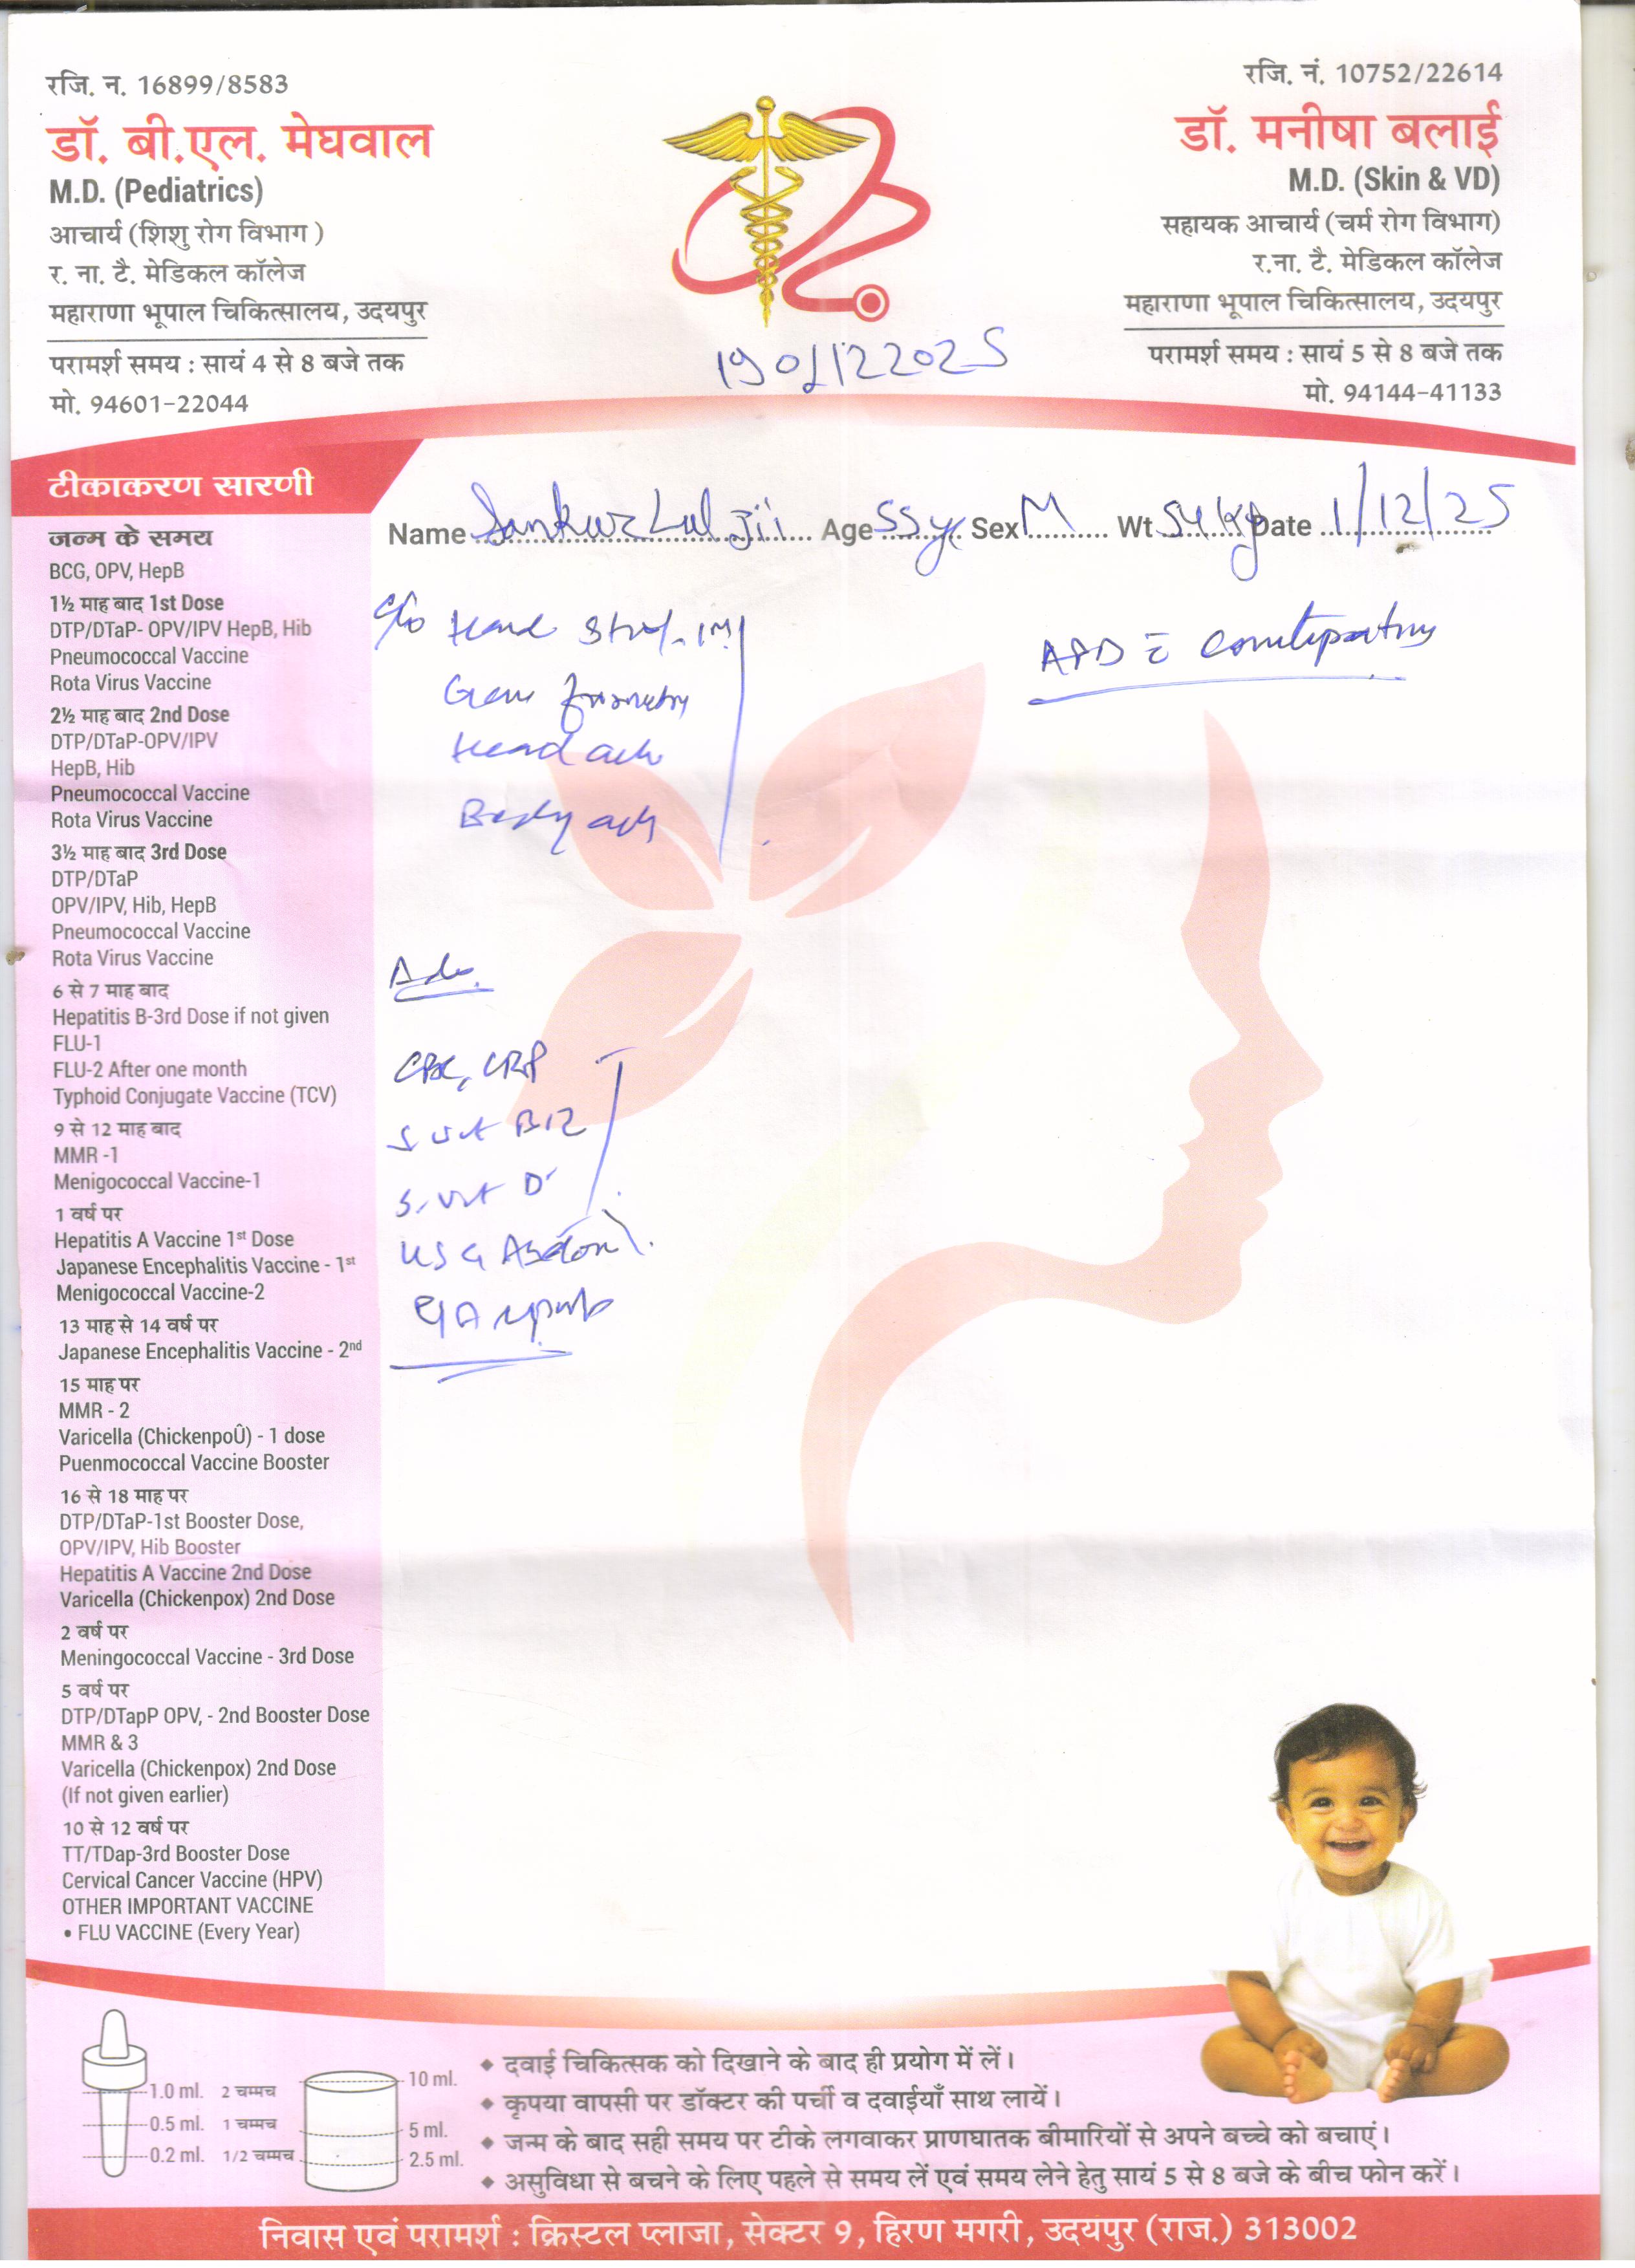 रजि. न. 16899/8583
डॉ. बी.एल. मेघवाल
M.D. (Pediatrics)
आचार्य (शिशु रोग विभाग )
र. ना. टै. मेडिकल कॉलेज
महाराणा भूपाल चिकित्सालय, उदयपुर
परामर्श समय : सायं 4 से 8 बजे तक
मो. 94601-22044
रजि. नं. 10752/22614
डॉ. मनीषा बलाई
M.D. (Skin & VD)
सहायक आचार्य (चर्म रोग विभाग)
र.ना. टै. मेडिकल कॉलेज
महाराणा भूपाल चिकित्सालय, उदयपुर
परामर्श समय : सायं 5 से 8 बजे तक
मो. 94144-41133
Name Lal Jii Age 55 yr Sex M Wt 54 kg Date 1/12/25
C/o
Head ach
Body ach
APD c̄
Adv.
CBC, CRP
S. Vit B12
S. Vit D
USG
टीकाकरण सारणी
जन्म के समय
BCG, OPV, HepB
1½ माह बाद 1st Dose
DTP/DTaP- OPV/IPV HepB, Hib
Pneumococcal Vaccine
Rota Virus Vaccine
2½ माह बाद 2nd Dose
DTP/DTaP-OPV/IPV
HepB, Hib
Pneumococcal Vaccine
Rota Virus Vaccine
3½ माह बाद 3rd Dose
DTP/DTaP
OPV/IPV, Hib, HepB
Pneumococcal Vaccine
Rota Virus Vaccine
6 से 7 माह बाद
Hepatitis B-3rd Dose if not given
FLU-1
FLU-2 After one month
Typhoid Conjugate Vaccine (TCV)
9 से 12 माह बाद
MMR -1
Menigococcal Vaccine-1
1 वर्ष पर
Hepatitis A Vaccine 1st Dose
Japanese Encephalitis Vaccine - 1st
Menigococcal Vaccine-2
13 माह से 14 वर्ष पर
Japanese Encephalitis Vaccine - 2nd
15 माह पर
MMR - 2
Varicella (ChickenpoÛ) - 1 dose
Puenmococcal Vaccine Booster
16 से 18 माह पर
DTP/DTaP-1st Booster Dose,
OPV/IPV, Hib Booster
Hepatitis A Vaccine 2nd Dose
Varicella (Chickenpox) 2nd Dose
2 वर्ष पर
Meningococcal Vaccine - 3rd Dose
5 वर्ष पर
DTP/DTapP OPV, - 2nd Booster Dose
MMR & 3
Varicella (Chickenpox) 2nd Dose
(If not given earlier)
10 से 12 वर्ष पर
TT/TDap-3rd Booster Dose
Cervical Cancer Vaccine (HPV)
OTHER IMPORTANT VACCINE
• FLU VACCINE (Every Year)
1.0 ml. 2 चम्मच
0.5 ml. 1 चम्मच
0.2 ml. 1/2 चम्मच
10 ml.
5 ml.
2.5 ml.
◆ दवाई चिकित्सक को दिखाने के बाद ही प्रयोग में लें।
◆ कृपया वापसी पर डॉक्टर की पर्ची व दवाईयाँ साथ लायें।
◆ जन्म के बाद सही समय पर टीके लगवाकर प्राणघातक बीमारियों से अपने बच्चे को बचाएं।
◆ असुविधा से बचने के लिए पहले से समय लें एवं समय लेने हेतु सायं 5 से 8 बजे के बीच फोन करें।
निवास एवं परामर्श : क्रिस्टल प्लाजा, सेक्टर 9, हिरण मगरी, उदयपुर (राज.) 313002